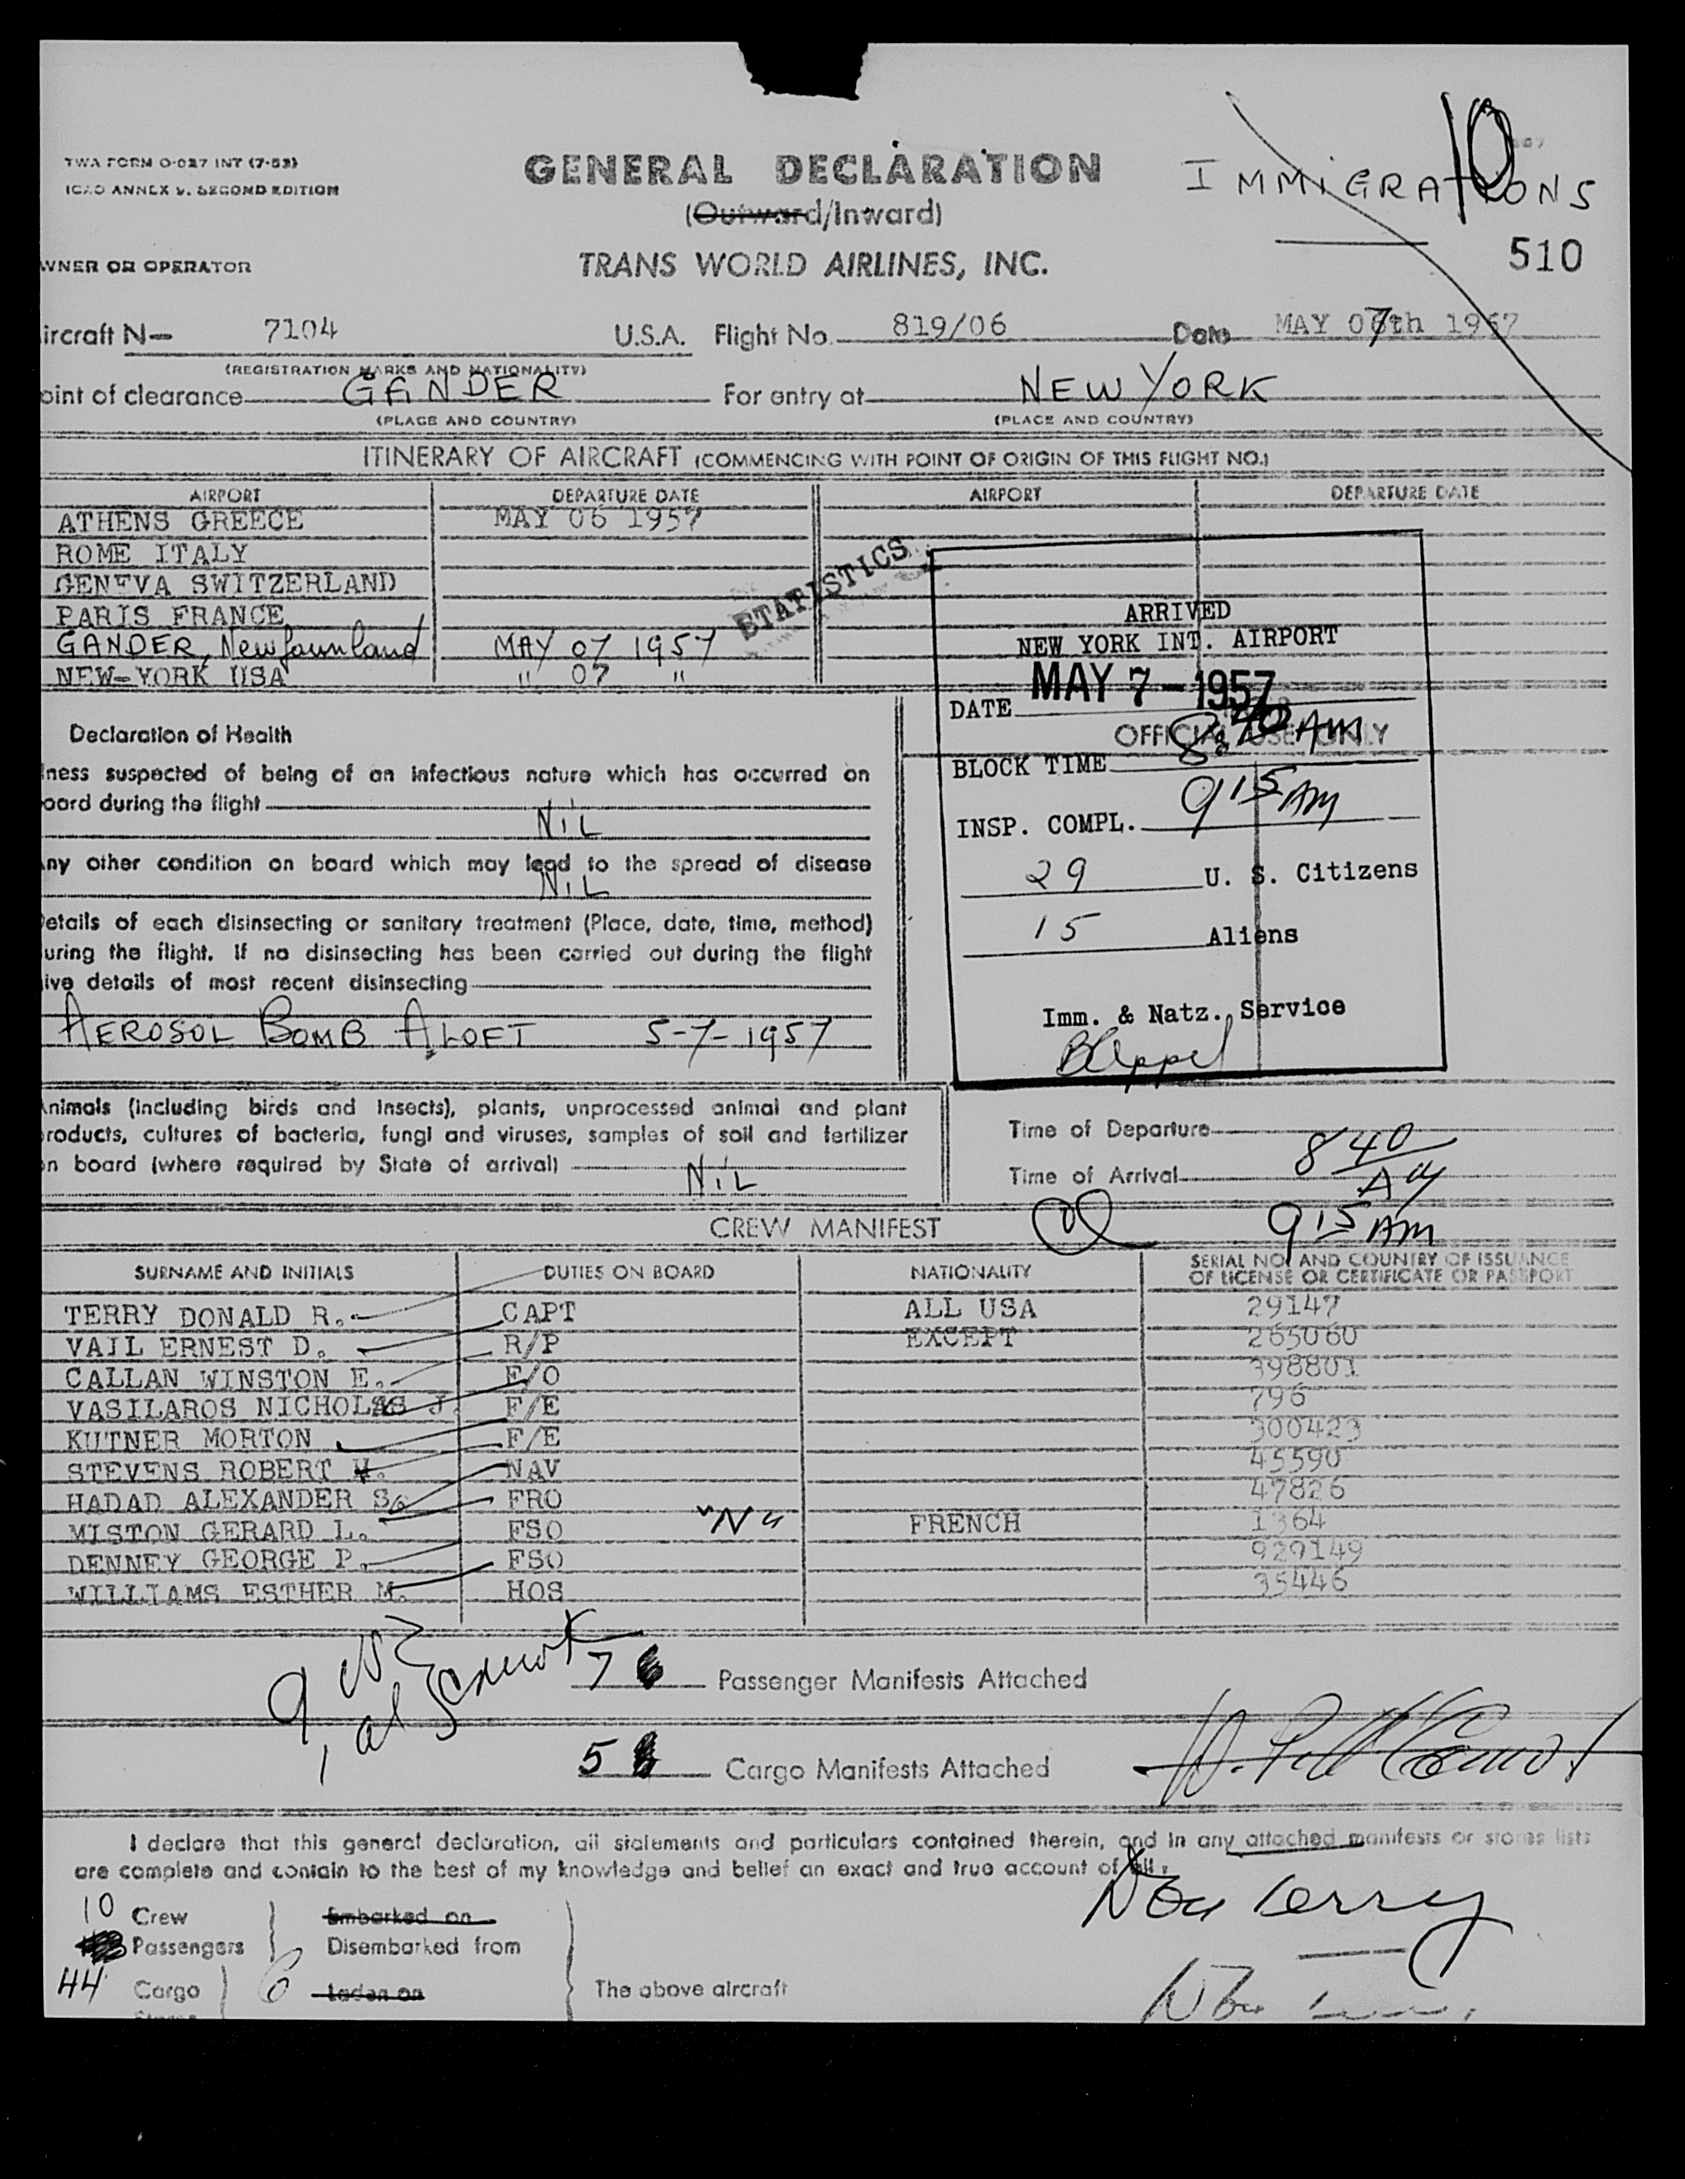 TWA FORM O-027 INT (7-53)
ICAO ANNEX 9. SECOND EDITION
GENERAL DECLARATION
(Outward/Inward)
IMMIGRATIONS
10
510
WNER OR OPERATOR
TRANS WORLD AIRLINES, INC.
ircraft N- 7104 U.S.A. Flight No. 819/06 Date MAY 07th 1957
(REGISTRATION MARKS AND NATIONALITY)
oint of clearance GANDER For entry at NEW YORK
(PLACE AND COUNTRY) (PLACE AND COUNTRY)
ITINERARY OF AIRCRAFT (COMMENCING WITH POINT OF ORIGIN OF THIS FLIGHT NO.)
AIRPORT DEPARTURE DATE AIRPORT DEPARTURE DATE
ATHENS GREECE MAY 06 1957
ROME ITALY
GENEVA SWITZERLAND
PARIS FRANCE
GANDER, Newfounland MAY 07 1957
NEW-YORK USA " 07 "
STATISTICS
ARRIVED
NEW YORK INT. AIRPORT
DATE MAY 7-1957
OFFICIAL USE ONLY
BLOCK TIME 8:40 AM
INSP. COMPL. 9 15 AM
29 U. S. Citizens
15 Aliens
Imm. & Natz. Service
Declaration of Health
lness suspected of being of an infectious nature which has occurred on
oard during the flight
NiL
ny other condition on board which may lead to the spread of disease
NiL
etails of each disinsecting or sanitary treatment (Place, date, time, method)
uring the flight. If no disinsecting has been carried out during the flight
ive details of most recent disinsecting
AEROSOL BOMB ALOFT 5-7-1957
nimals (including birds and insects), plants, unprocessed animal and plant
roducts, cultures of bacteria, fungi and viruses, samples of soil and fertilizer
n board (where required by State of arrival) NiL
Time of Departure
Time of Arrival 8 40 AM
9 15 AM
CREW MANIFEST
SURNAME AND INITIALS DUTIES ON BOARD NATIONALITY SERIAL NO. AND COUNTRY OF ISSUANCE
OF LICENSE OR CERTIFICATE OR PASSPORT
TERRY DONALD R. CAPT ALL USA 29147
VAIL ERNEST D. R/P EXCEPT 265060
CALLAN WINSTON E. F/O 398801
VASILAROS NICHOLAS J. F/E 796
KUTNER MORTON F/E 300423
STEVENS ROBERT W. NAV 45590
HADAD ALEXANDER S. FRO 47826
MISTON GERARD L. FSO "N" FRENCH 1364
DENNEY GEORGE P. FSO 929149
WILLIAMS ESTHER M. HOS 35446
7 Passenger Manifests Attached
5 Cargo Manifests Attached
I declare that this general declaration, all statements and particulars contained therein, and in any attached manifests or stores lists
are complete and contain to the best of my knowledge and belief an exact and true account of all:
Don Terry
10 Crew Embarked on
Passengers Disembarked from
44 Cargo Laden on The above aircraft